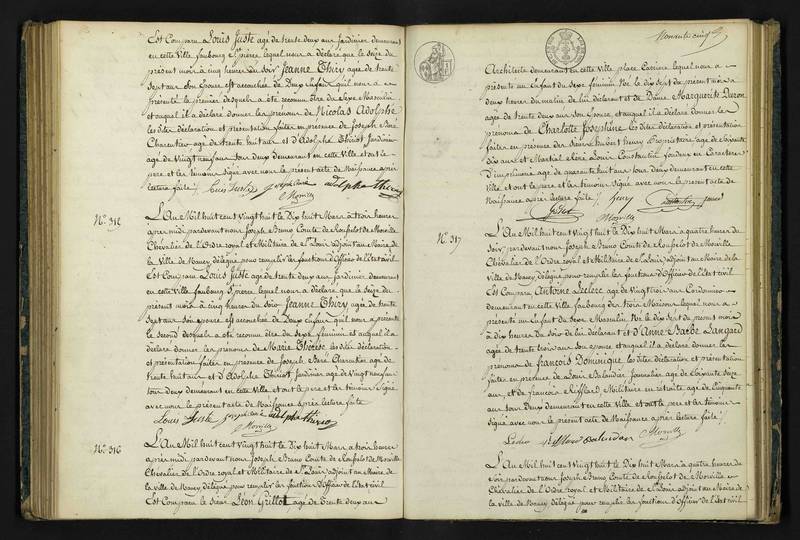 Est Comparu Louis Juste agé de trente deux ans Jardinier demeurant
en cette Ville faubourg St pierre, lequel nous a déclaré que le seize du
présent mois à cinq heures du soir Jeanne Thiry agée de trente
sept ans son Epouse est accouchée de Deux Enfans qu'il nous a
présenté le premier desquels a été reconnu être du Sexe Masculin
et auquel il a déclaré donner les prénoms de Nicolas Adolphe
les dites déclaration et présentation faites en présence de Joseph
Charentier agé de trente huit ans et d'Adolphe Thiriot Jardinier
agé de Vingt neuf ans tous deux demeurant en cette Ville et ont le
pere et les témoins signé avec nous le présent acte de Naissance après
lecture faite Louis Juste adolphe thirio
Moriville
No. 315
L'An Mil huit cent Vingt huit le Dix huit Mars à trois heures
après midi pardevant nous Joseph Bruno Comte de
Chevalier de l'Ordre royal et Militaire de St Louis adjoint au Maire de
la Ville de Nancy délégué pour remplir les fonctions d'Officier de l'état civil
Est Comparu Louis Juste agé de trente deux ans Jardinier demeurant
en cette Ville faubourg St pierre, lequel nous a déclaré que le seize du
présent mois à cinq heures du soir Jeanne Thiry agée de trente
sept ans son épouse est accouchée de Deux Enfans qu'il nous a présenté
le second desquels a été reconnu être du sexe féminin et auquel il a
déclaré donner les prénoms de Marie Thérèse les dites déclaration
et présentation faites en présence de Joseph Charentier agé de
trente huit ans et d'Adolphe Thiriot Jardinier agé de Vingt neuf ans
tous deux demeurant en cette Ville et ont le pere et les témoins signé
avec nous le présent acte de Naissance après lecture faite
Louis Juste adolphe thirio
No. 316
L'An Mil huit cent Vingt huit le Dix huit Mars à trois heures
après midi pardevant nous Joseph Bruno Comte de
Chevalier de l'Ordre royal et Militaire de St Louis adjoint au Maire de
la ville de Nancy délégué pour remplir les fonctions d'Officier de l'état civil
Est Comparu le sieur Léon Grillot agé de Trente deux ans
Architecte demeurant en cette Ville place Carriere lequel nous a
présenté un Enfant du Sexe féminin Né le dix sept du présent mois à
deux heures du matin de lui déclarant et de Dame Marguerite
agée de trente ans son épouse, et auquel il a déclaré donner les
prénoms de Charlotte Joséphine les dites déclaration et présentation
faites en présence des sieurs henry Propriétaire agé de soixante
Dix ans et Martial Louis Constantin fondeur en Caractères
D'imprimerie agé de quarante huit ans tous deux demeurant en cette
Ville et ont le pere et les témoins signé avec nous le présent acte de
Naissance après lecture faite henry
Moriville
No. 317
L'An Mil huit cent Vingt huit le Dix huit Mars à quatre heures du
soir pardevant nous Joseph Bruno Comte de
Chevalier de l'Ordre royal et Militaire de St Louis adjoint au Maire de la
Ville de Nancy délégué pour remplir les fonctions d'Officier de l'état civil
Est Comparu Antoine Leclerc agé de Vingt trois ans Cordonnier
demeurant en cette Ville faubourg des trois Maisons lequel nous a
présenté un Enfant du Sexe Masculin Né le dix sept du présent mois
à dix heures du soir de lui déclarant et d'Anne Barbe Langard
agée de trente trois ans son épouse et auquel il a déclaré donner les
prénoms de françois Dominique les dites déclaration et présentation
faites en présence de Louis agé de soixante seize
ans, et de françois Militaire en retraite agé de Cinquante
ans tous deux demeurant en cette ville et ont le pere et les témoins
signé avec nous le présent acte de Naissance après lecture faite
Moriville
L'An Mil huit cent Vingt huit le Dix huit Mars à quatre heures du
soir pardevant nous Joseph Bruno Comte de
Chevalier de l'Ordre royal et Militaire de St Louis adjoint au Maire de
la ville de Nancy délégué pour remplir les fonctions d'Officier de l'état civil